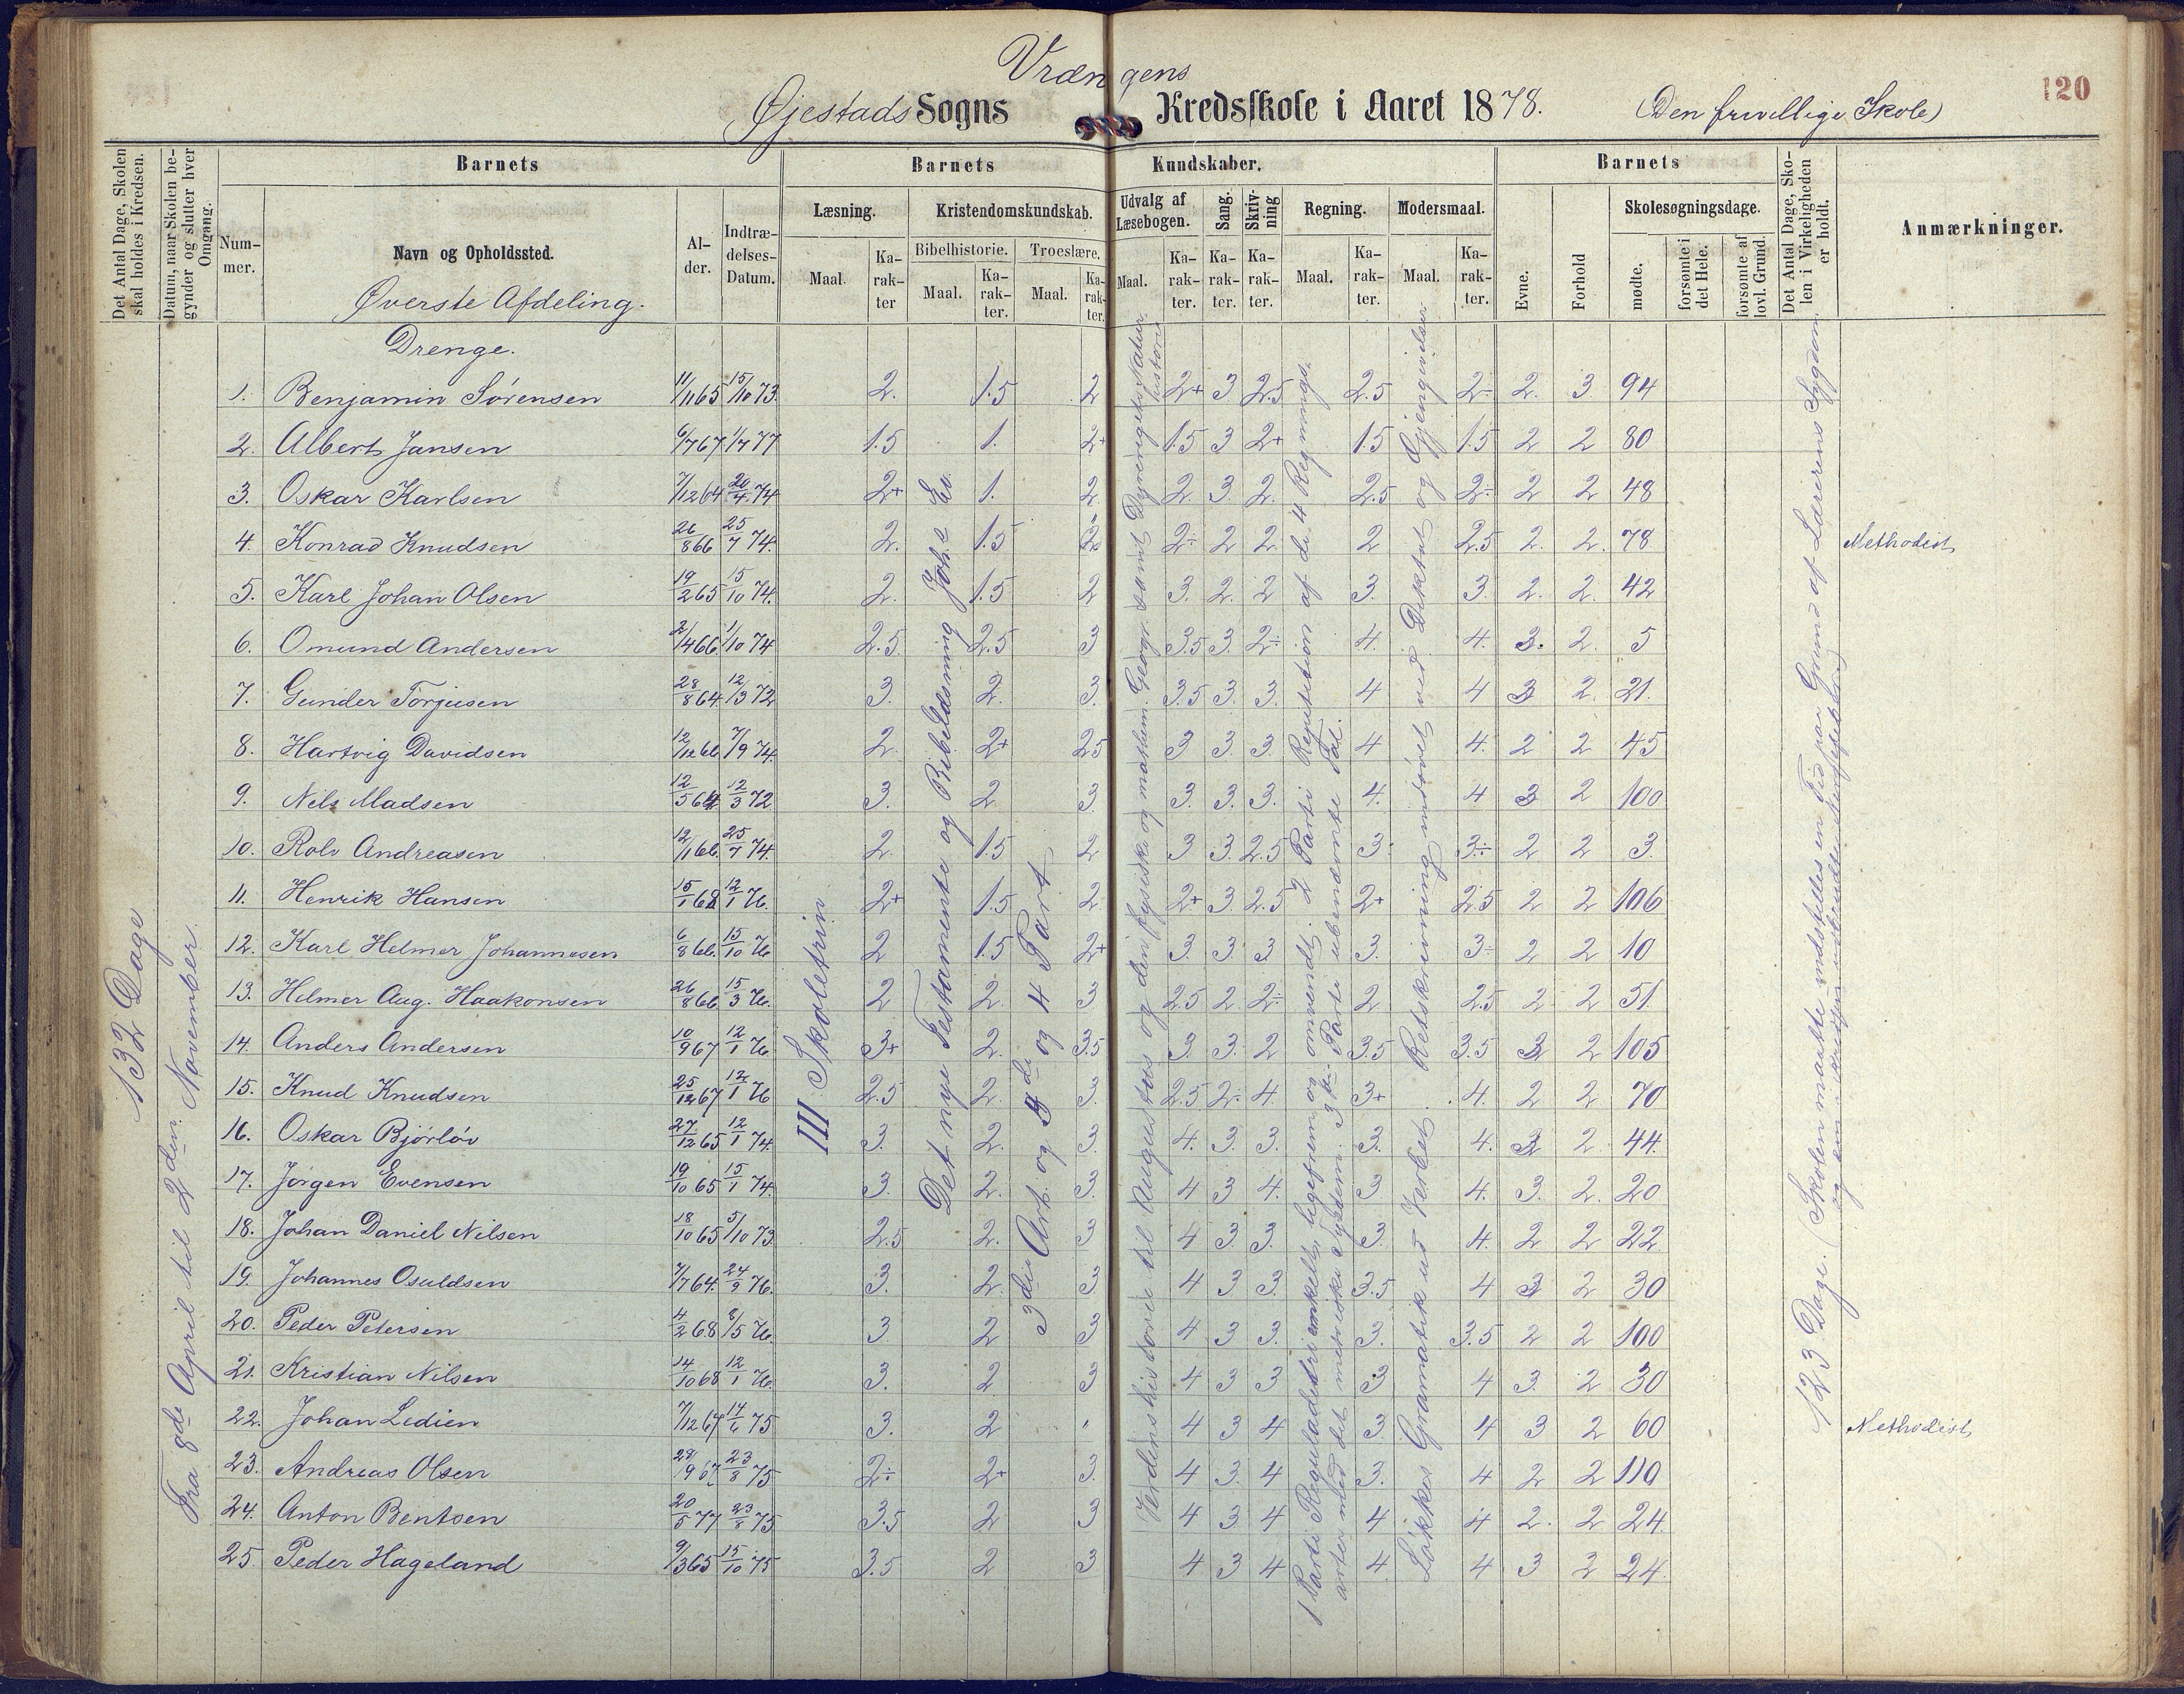 Vrængens
Øjestads Sogns Kredsskole i Aaret 1878. (Den frivillige Skole) 120
Det Antal Dage, Skolen skal holdes i Kredsen.
Datum, naar Skolen begynder og slutter hver Omgang.
Barnets
Barnets Kundskaber.
Barnets
Det Antal Dage, Skolen i Virkeligheden er holdt.
Anmærkninger.
Nummer.
Navn og Opholdssted.
Alder.
Indtrædelses-Datum.
Læsning.
Kristendomskundskab.
Udvalg af Læsebogen.
Sang.
Skrivning
Regning.
Modersmaal.
Evne.
Forhold
Skolesøgningsdage.
Bibelhistorie. Troeslære.
Maal. Karakter Maal. Karakter. Maal. Karakter. Maal. Karakter. Karakter. Karakter. Maal. Karakter. Maal. Karakter.
mødte. forsømte i det Hele. forsømte af lovl. Grund.
Øverste Afdeling.
Drenge.
132 Dage
Fra 8de April til 2den November.
III Skoletrin
Det nye Testamente og Bibellæsning Joh.s Ev.
3die Art. og 3die og 4 Part
Verdenshistorie til Augustus og den fysiske og mathem. Geogr. samt Dyrerigets Naturhistorie
1 Parti Reguladetri enkelt, ligefrem og omvendt. 2 Parti Repetition af de 4 Regnings-
arter med det metriske System. 3die Parti ubenævnte Tal.
Løkkes Gramatik ud Verbet. Retskrivning indøvet ved Diktat og Gjengivelser
123 Dage. (Skolen maatte indstilles en Tid paa Grund af Lærerens Sygdom
1. Benjamin Sørensen 11/11 65 15/10 73. 2. 1.5 2 2+ 3 2.5 2.5 2÷ 2. 3 94
2. Albert Jansen 6/7 67 1/7 77 1.5 1. 2+ 1.5 3 2+ 1.5 1.5 2 2 80
3. Oskar Karlsen 7/12 64 20/4 74 2+ 1. 2 2 3. 2. 2.5 2÷ 2 2 48
4. Konrad Knudsen 26/8 66 25/7 74. 2. 1.5 2÷ 2 2. 2 2.5 2. 2. 78 Methodist
5. Karl Johan Olsen 19/2 65 15/10 74. 2. 1.5 2 3. 2. 2 3. 3. 2. 2. 42
6. Omund Andersen 2/4 66. 1/10 74 2.5. 2.5 3 3.5 3. 2÷ 4. 4. 3. 2. 5
7. Gunder Torjusen 28/8 64. 12/3 72 3. 2. 3. 3.5 3. 3. 4 4 3 2. 21.
8. Hartvig Davidsen 12/12 66. 7/9 74. 2. 2+ 2.5 3 3. 3. 4 4. 2 2 45
9. Nils Madsen 12/5 64. 12/3 72 3. 2 3 3. 3. 3. 4. 4 3 2 100
10. Rolv Andreasen 12/1 66. 25/7 74. 2. 1.5 2 3 3. 2.5 3 3÷ 2 2 3.
11. Henrik Hansen 15/1 68 12/1 76. 2+ 1.5 2. 2+ 3. 2.5 2+ 2.5 2 2 106
12. Karl Helmer Johannesen 6/8 66. 15/10 76 2 1.5 2+ 3. 3. 3 3. 3÷ 2 2 10
13. Helmer Aug. Haakonsen 26/8 66. 15/3 76. 2 2. 3 2.5 2 2÷ 2 2.5 2 2 51.
14. Anders Andersen 10/9 67 12/1 76. 3+ 2. 3.5 3. 3. 2 3.5 3.5 3 2 105
15. Knud Knudsen 25/12 67 12/1 76 2.5 2. 3. 2.5 2÷ 4. 3+ 4. 2 2 70
16. Oskar Bjørløv 27/12 65 12/1 74. 3. 2. 3. 4. 3. 3. 3. 4. 3 2. 44.
17. Jørgen Evensen 19/10 65 15/1 74. 3. 2. 3. 4 3 4. 3 4. 3. 2. 20
18. Johan Daniel Nilsen 18/10 65 5/10 73. 2.5 2. 3 4 3. 3. 3. 4. 2 2 22.
19. Johannes Osuldsen 7/7 64. 24/9 76. 3. 2. 3 4 3 3. 3.5 4 3 2 30
20. Peder Petersen 4/2 68 8/5 76. 3 2 3 4 3 3. 3. 3.5 2 2 100
21. Kristian Nilsen 14/10 68 12/1 76. 3. 2 3 4 3 3 3 4 3. 2 30
22. Johan Ledien 7/12 67 14/6 75 3. 2 " 4 3 4 3 4 3 2 60 Methodist
23. Andreas Olsen 28/9 67 23/8 75 2÷ 2+ 3. 4 3. 4 3. 4 2 2 110
24. Anton Bentsen 20/5 77 23/8 75 3.5 2 3 4 3 4 4 4 2. 2 24
25. Peder Hageland 9/3 65 15/10 75 3.5 2 3 4 3 4 4. 4 3 2 24.